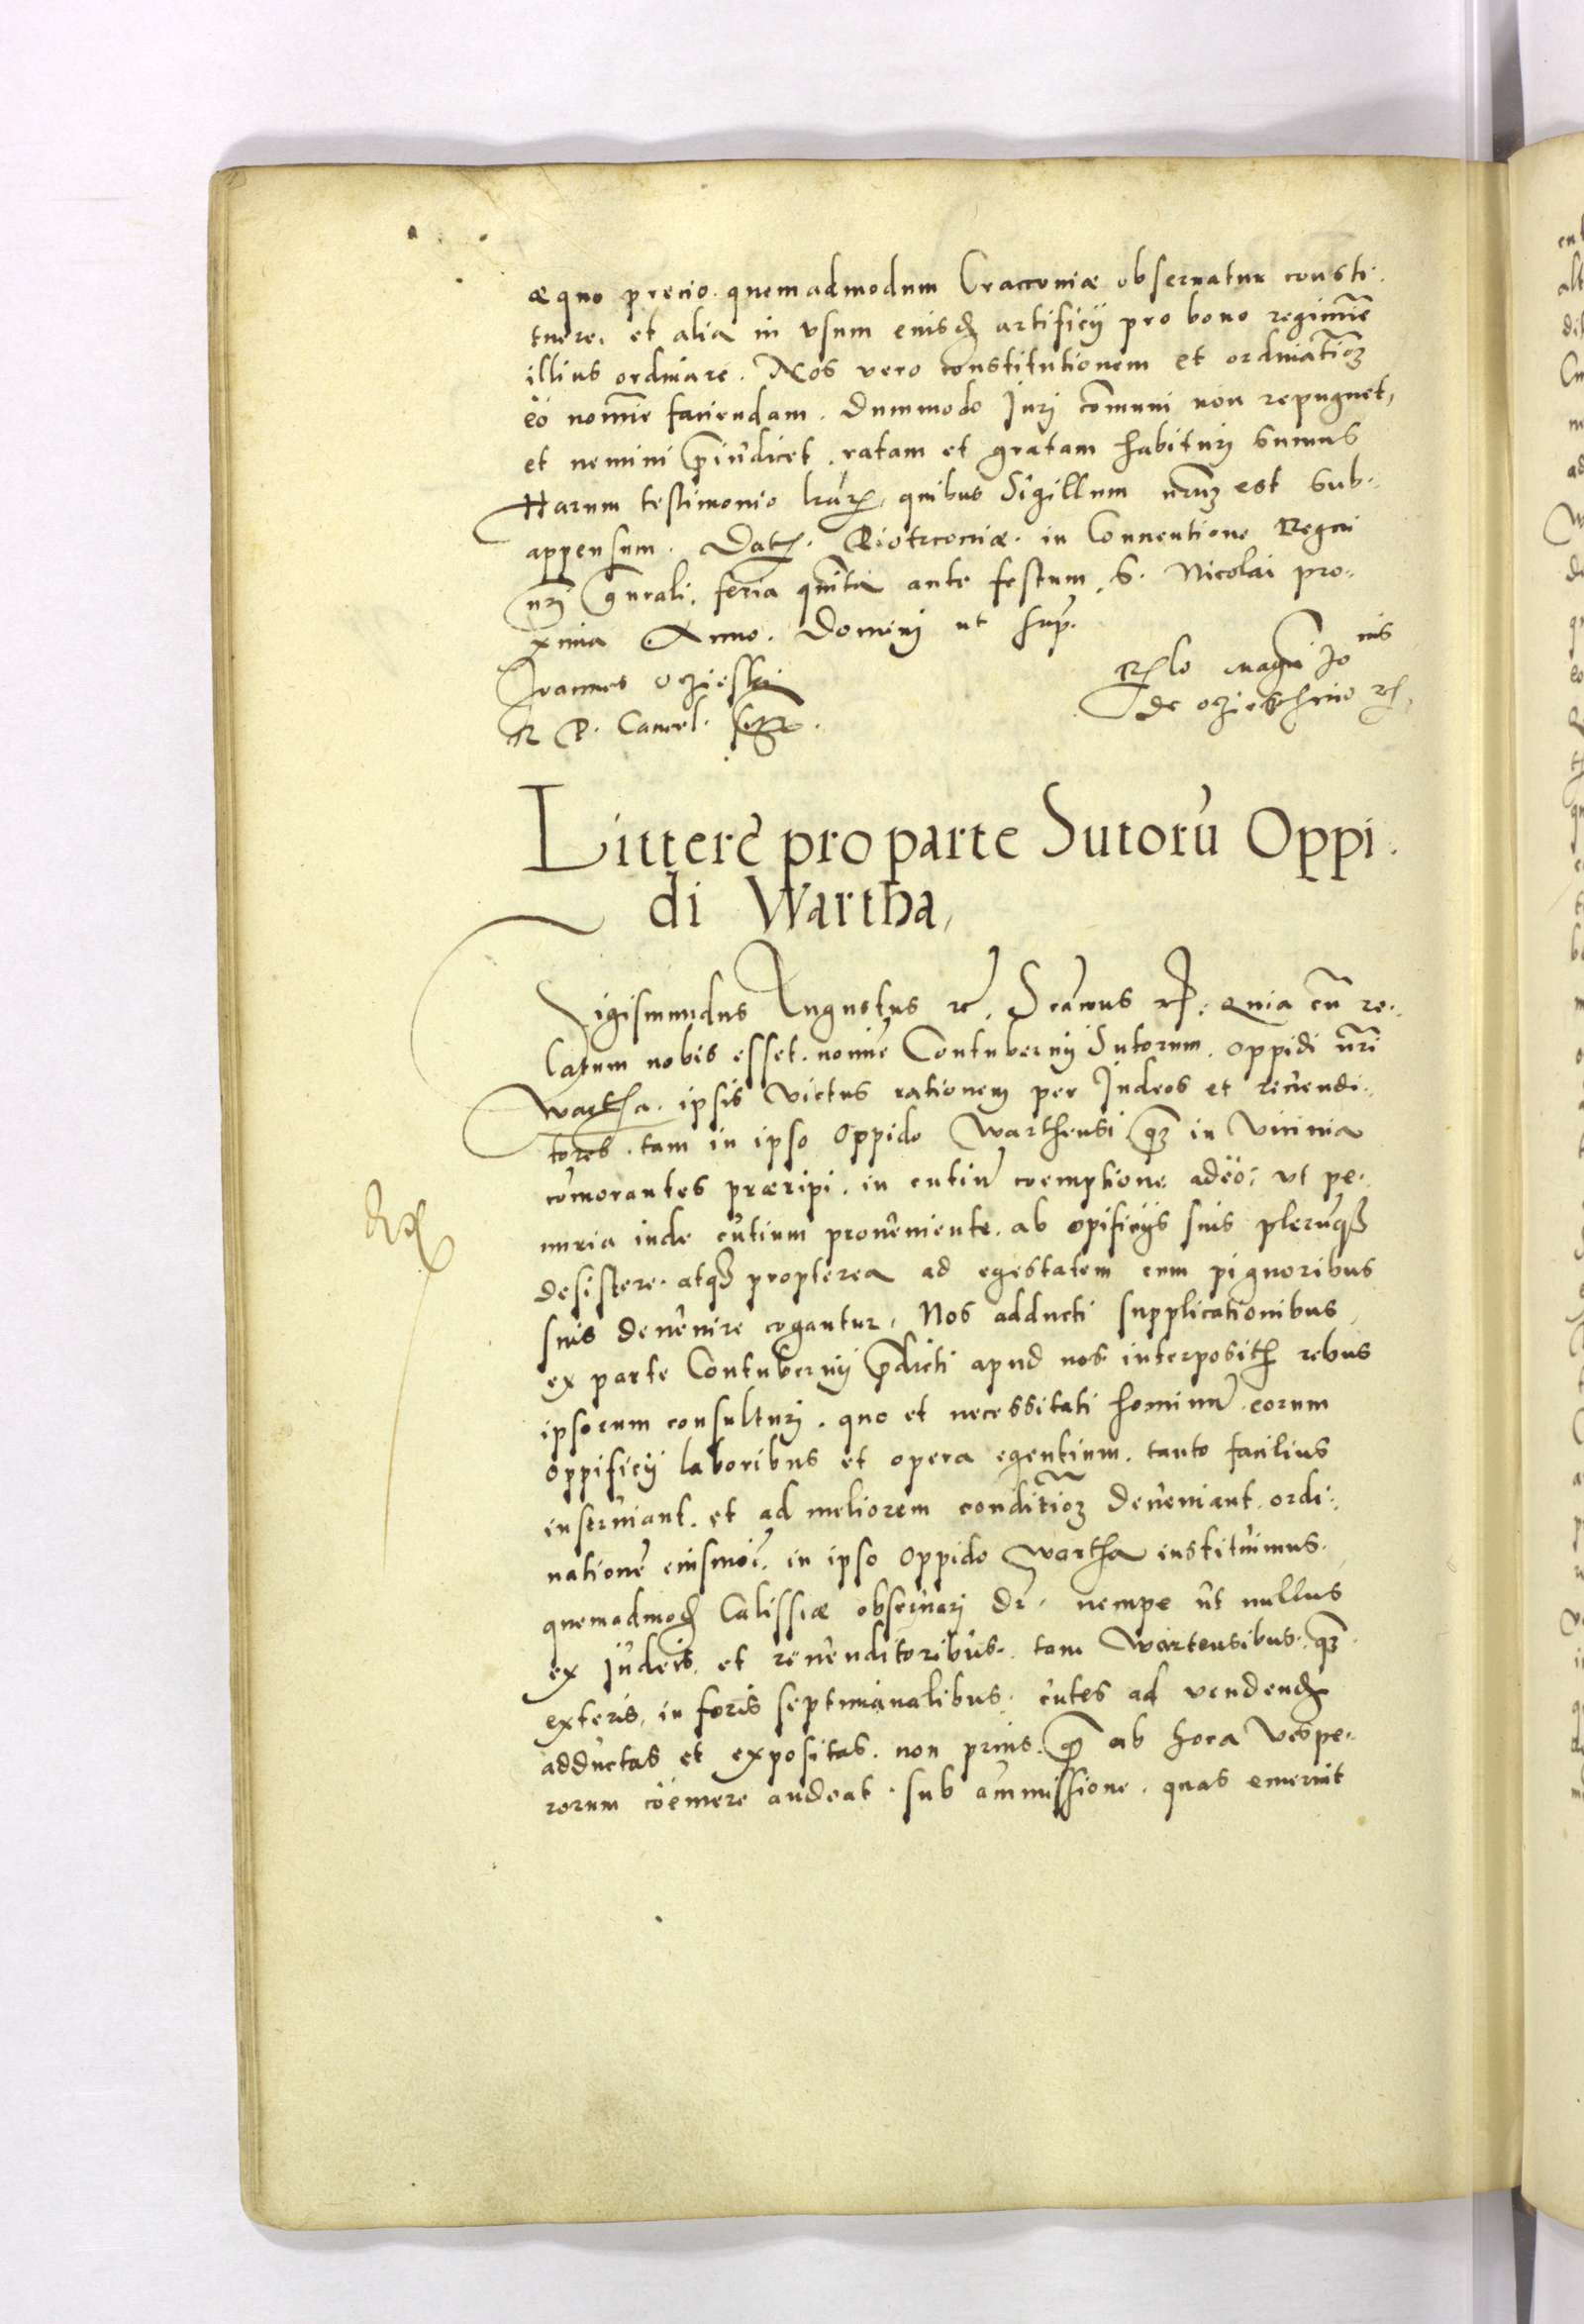 æquo precio. quemadmodum Cracouiæ obseruatur consti-
tuere, et alia in vsum eiusd artificij pro bono regimine
illius ordinare. Nos vero constitutionem et ordinatioz
eo nomine faciendam. dummodo Iuri comuni non repugnet,
et nemini pͤiudicet, ratam et gratam habituri sumus
Harum testimonio lrarz, quibus Sigillum nrmz est sub-
appensum. Dat. Piotrcouiæ. in Conuentione Regni
nri gnrali, feria quinta ante festum S. Nicolai pro-
xima Anno. Domini ut supr.
Joannes Oczieski
R P. Cancel. ssz.
Rlo magci Jonis
de oczieschino rc,
Litterę pro parte Sutorū Oppi-
di Wartha,
Sigismundus Augustus rc. Deamus rc. Quia cū re-
latum nobis esset. nomine Contubernij Sutorum. oppidi nri
wartha. ipsis victus rationem per Judeos et reuendi-
tores. tam in ipso Oppido Warthensi qz in vicinia
comorantes præripi. in cutiū coemptione adeo: vt pe-
nuria inde cutium proueniente. ab opificijs suis plerūqz
desistere. atqz propterea ad egestatem cum pignoribus
suis deuenire cogantur, Nos adducti supplicationibus,
ex parte Contubernij pdicti apud nos interpositis rebus
ipsorum consulturi. quo et necessitati hominū eorum
oppificij laboribus et opera egentium. tanto facilius
inseruiant. et ad meliorem conditioz deueniant. ordi-
nationē eiusmoi. in ipso Oppido wartha instituimus.
quemadmod Calissiæ obseruari dr. nempe ut nullus
ex judeis. et reuenditoribus. tam wartensibus. qz
exteris, in foris septimanalibus. cutes ad vendend
adductas et expositas. non prius. qz ab hora vespe-
rorum coemere audeat. sub ammissione. quas emerint